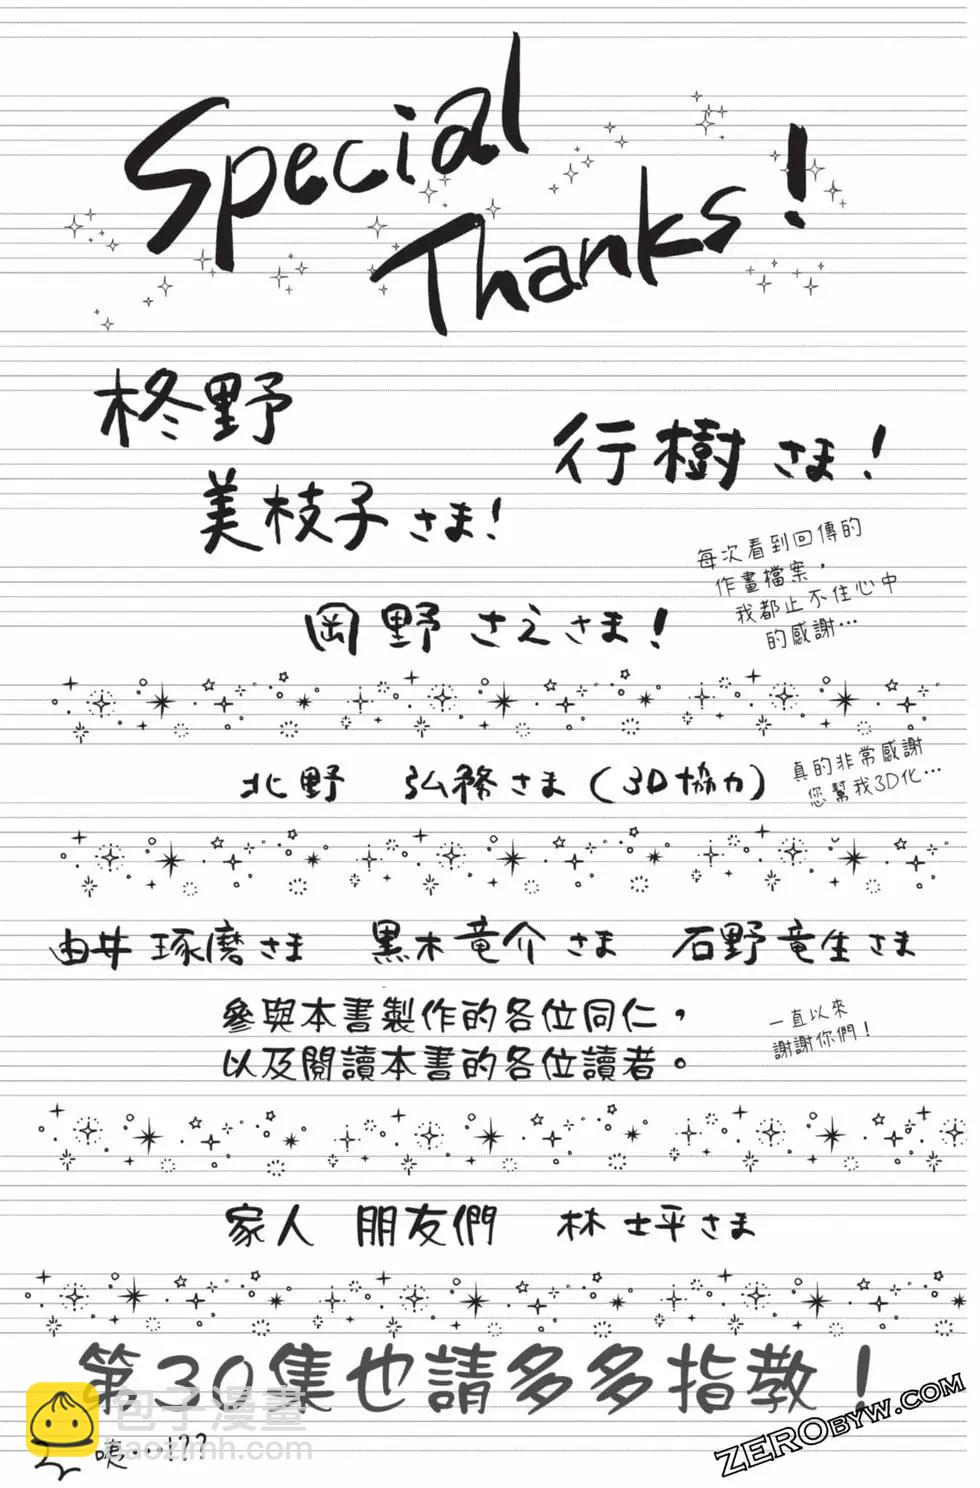 Special
Thanks!
柊野
美枝子さま!
行樹さま!
每次看到回傳的
作畫檔案，
我都止不住心中
的感謝…
岡野 さえさま!
北野 弘務さま(3D協力)
真的非常感謝
您幫我3D化…
由井 琢磨さま 黒木竜介さま 石野竜生さま
參與本書製作的各位同仁，
以及閱讀本書的各位讀者。
一直以來
謝謝你們!
家人 朋友們 林士平さま
第30集也請多多指教!
包子漫畫
baozimh.com
咦…!??
ZEROBYW.COM